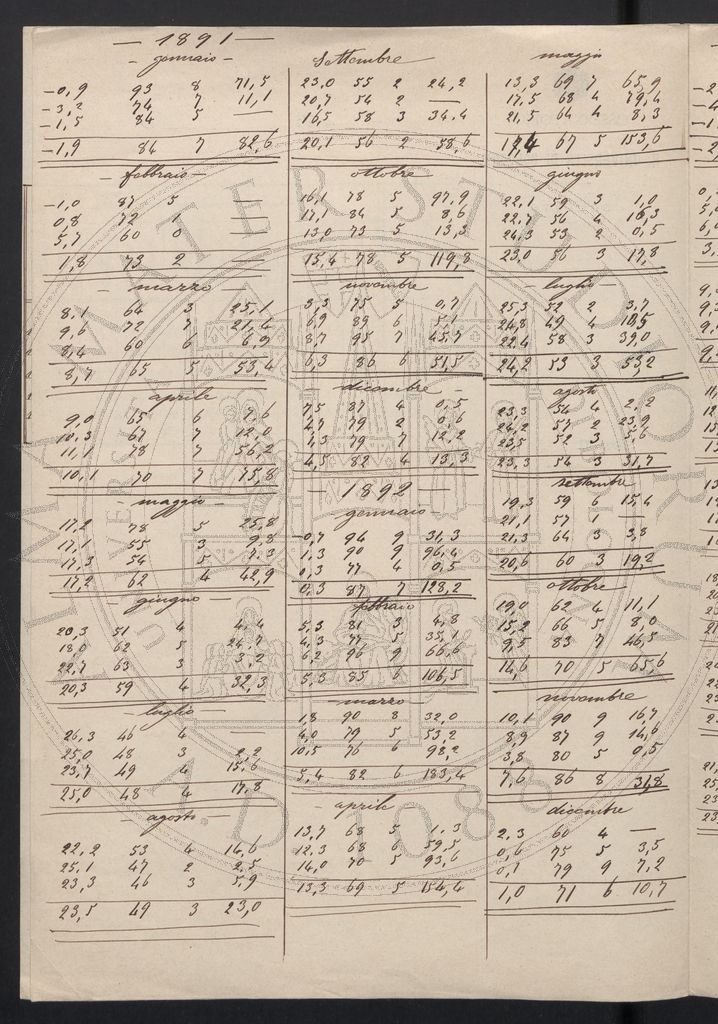 — 1891 —
- gennaio -
-0,9 93 8 71,5
-3,2 74 7 11,1
-1,5 84 5 —
-1,9 84 7 82,6
- febbraio -
-1,0 87 5 —
0,8 72 1 —
5,7 60 0 —
1,8 73 2 —
- marzo -
8,1 64 3 25,1
9,6 72 7 21,4
8,4 60 6 6,9
8,7 65 5 53,4
aprile
9,0 65 6 7,6
10,3 67 7 12,0
11,1 78 7 56,2
10,1 70 7 75,8
- maggio -
17,2 78 5 25,8
17,1 55 3 9,8
17,3 54 5 7,3
17,2 62 4 42,9
- giugno -
20,3 51 4 4,4
18,0 62 5 24,7
22,7 63 3 3,2
20,3 59 4 32,3
- luglio -
26,3 46 4 —
25,0 48 3 2,2
23,7 49 4 15,6
25,0 48 4 17,8
- agosto -
22,2 53 4 14,6
25,1 47 2 2,5
23,3 46 3 5,9
23,5 49 3 23,0
Settembre
23,0 55 2 24,2
20,7 54 2 —
16,5 58 3 34,4
20,1 56 2 58,6
ottobre
16,1 78 5 97,9
17,1 84 5 8,6
13,0 73 5 13,3
15,4 78 5 119,8
novembre
3,3 75 5 0,7
6,9 89 6 5,1
8,7 95 7 45,7
6,3 86 6 51,5
- dicembre -
7,5 87 4 0,5
4,7 79 2 0,6
1,3 79 7 12,2
4,5 82 4 13,3
1892
gennaio -
-0,7 94 9 31,3
1,3 90 9 96,4
0,3 77 4 0,5
0,3 87 7 128,2
febbraio
5,3 81 3 4,8
4,3 77 5 35,1
6,2 96 9 66,6
5,3 85 6 106,5
- marzo -
1,8 90 8 32,0
4,0 79 5 53,2
10,5 76 6 98,2
5,4 82 6 183,4
- aprile
13,7 68 5 1,3
12,3 68 6 59,5
14,0 70 5 93,6
13,3 69 5 154,4
maggio
13,3 69 7 65,9
17,5 68 4 79,4
21,5 64 4 8,3
17,4 67 5 153,6
giugno
22,1 59 3 1,0
22,7 56 4 16,3
24,3 53 2 0,5
23,0 56 3 17,8
- luglio -
25,3 52 2 3,7
24,8 49 4 10,5
22,4 58 3 39,0
24,2 53 3 53,2
agosto
23,3 54 4 2,2
24,2 57 2 23,9
23,5 52 3 5,6
23,3 54 3 31,7
settembre
19,3 59 6 15,4
21,1 57 1 —
21,3 64 3 3,8
20,6 60 3 19,2
ottobre
19,0 62 4 11,1
15,2 66 5 8,0
9,5 83 7 46,5
14,6 70 5 65,6
novembre
10,1 90 9 16,7
8,9 87 9 14,6
3,8 80 5 0,5
7,6 86 8 31,8
dicembre
2,3 60 4 —
0,6 75 5 3,5
0,1 79 9 7,2
1,0 71 6 10,7
ALMA MATER STUDIORUM
A.D. 1088